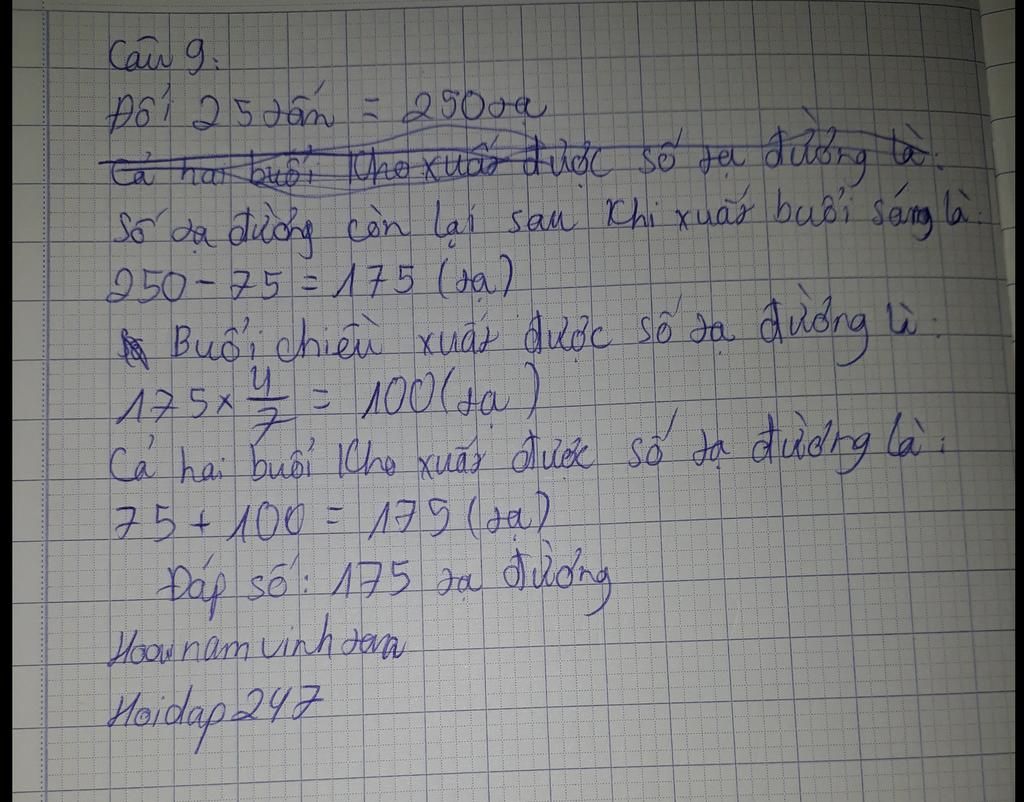 Câu 9:
Đổi 25 tấn = 250 tạ
Cả hai buổi kho xuất được số tạ đường là:
Số tạ đường còn lại sau khi xuất buổi sáng là:
250 - 75 = 175 (tạ)
Buổi chiều xuất được số tạ đường là:
175 × 4/7 = 100 (tạ)
Cả hai buổi kho xuất được số tạ đường là:
75 + 100 = 175 (tạ)
Đáp số: 175 tạ đường
Hoidap247